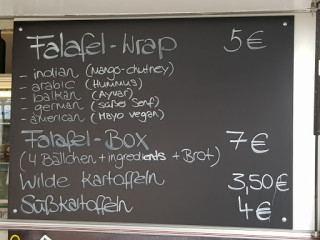 Falafel-Wrap 5€
- indian (Mango-chutney)
- arabic (Hummus)
- balkan (Ayvar)
- german (süße Senf)
- american (Mayo vegan)
Falafel-Box 7€
(4 Bällchen + ingredients + Brot)
Wilde Kartoffeln 3,50€
Süßkartoffeln 4€